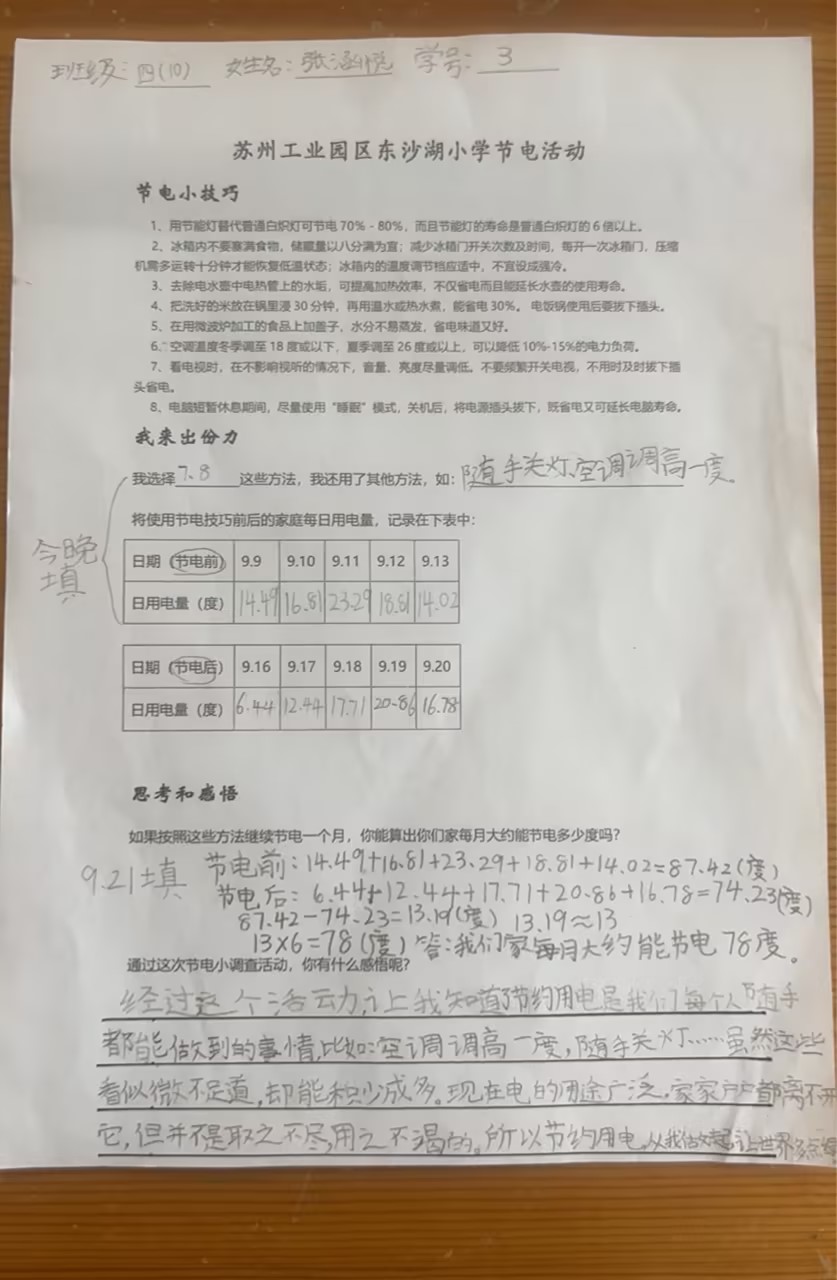 班级：四(10) 姓名：张涵悦 学号：3
苏州工业园区东沙湖小学节电活动
节电小技巧
1、用节能灯替代普通白炽灯可节电 70% - 80%，而且节能灯的寿命是普通白炽灯的 6 倍以上。
2、冰箱内不要塞满食物，储藏量以八分满为宜；减少冰箱门开关次数及时间，每开一次冰箱门，压缩
机需多运转十分钟才能恢复低温状态；冰箱内的温度调节档应适中，不宜设成强冷。
3、去除电水壶中电热管上的水垢，可提高加热效率，不仅省电而且能延长水壶的使用寿命。
4、把洗好的米放在锅里浸 30 分钟，再用温水或热水煮，能省电 30%。 电饭锅使用后要拔下插头。
5、在用微波炉加工的食品上加盖子，水分不易蒸发，省电味道又好。
6、空调温度冬季调至 18 度或以下，夏季调至 26 度或以上，可以降低 10%-15%的电力负荷。
7、看电视时，在不影响视听的情况下，音量、亮度尽量调低。不要频繁开关电视，不用时及时拔下插
头省电。
8、电脑短暂休息期间，尽量使用“睡眠”模式，关机后，将电源插头拔下，既省电又可延长电脑寿命。
我来出份力
我选择7、8这些方法，我还用了其他方法，如：随手关灯、空调调高一度。
将使用节电技巧前后的家庭每日用电量，记录在下表中：
今晚
填
日期（节电前） 9.9 9.10 9.11 9.12 9.13
日用电量（度） 14.49 16.81 23.29 18.81 14.02
日期（节电后） 9.16 9.17 9.18 9.19 9.20
日用电量（度） 6.44 12.44 17.71 20.86 16.78
思考和感悟
如果按照这些方法继续节电一个月，你能算出你们家每月大约能节电多少度吗？
9.21填 节电前：14.49+16.81+23.29+18.81+14.02=87.42(度)
节电后：6.44+12.44+17.71+20.86+16.78=74.23(度)
87.42-74.23=13.19(度) 13.19≈13
13×6=78(度) 答：我们家每月大约能节电78度。
通过这次节电小调查活动，你有什么感悟呢？
经过这个活动,让我知道了节约用电是我们每个人随手
都能做到的事情,比如：空调调高一度，随手关灯……虽然这些
看似微不足道,却能积少成多。现在电的用途广泛,家家户户都离不开
它,但并不是取之不尽,用之不竭的。所以节约用电,从我做起,让世界多点绿